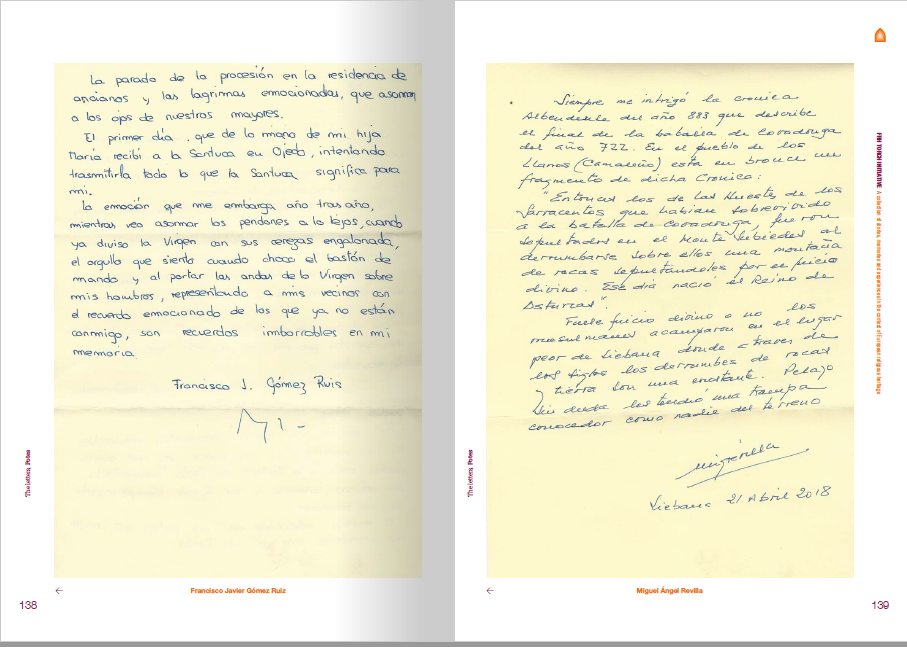 La parada de la procesión en la residencia de
ancianos y las lagrimas emocionadas, que asoman
a los ojos de nuestros mayores.
El primer día, que de la mano de mi hija
María recibí a la Santuca en Ojedo, intentando
trasmitirla todo lo que la Santuca significa para
mi.
La emoción que me embarga año tras año,
mientras veo asomar los pendones a lo lejos, cuando
ya diviso la Virgen con sus cerezas engalonada,
el orgullo que siento cuando choco el bastón de
mando y al portar las andas de la Virgen sobre
mis hombros, representando a mis vecinos con
el recuerdo emocionado de los que ya no están
conmigo, son recuerdos imborrables en mi
memoria.
Francisco J. Gómez Ruiz
The letters Potes
Francisco Javier Gómez Ruiz
138
Siempre me intrigó la cronica
Albendense del año 883 que describe
el final de la batalla de Covadonga
del año 722. En el pueblo de los
Llanos (Camaleño) esta en bronce un
fragmento de dicha Cronica:
"Entonces los de las Huestes de los
Sarracenos que habian sobrevivido
a la batalla de Covadonga, fueron
sepultados en el Monte Subiedes al
derrumbarse sobre ellos una montaña
de rocas sepultandoles por el juicio
divino. Ese dia nació el Reino de
Asturias".
Fuese juicio divino o no los
musulmanes acamparon en el lugar
peor de Liebana donde a traves de
los siglos los derrumbes de rocas
y tierra son una constante. Pelayo
sin duda les tendio una trampa
conocedor como nadie del terreno
Liebana 21 Abril 2018
The letters Potes
Miguel Ángel Revilla
139